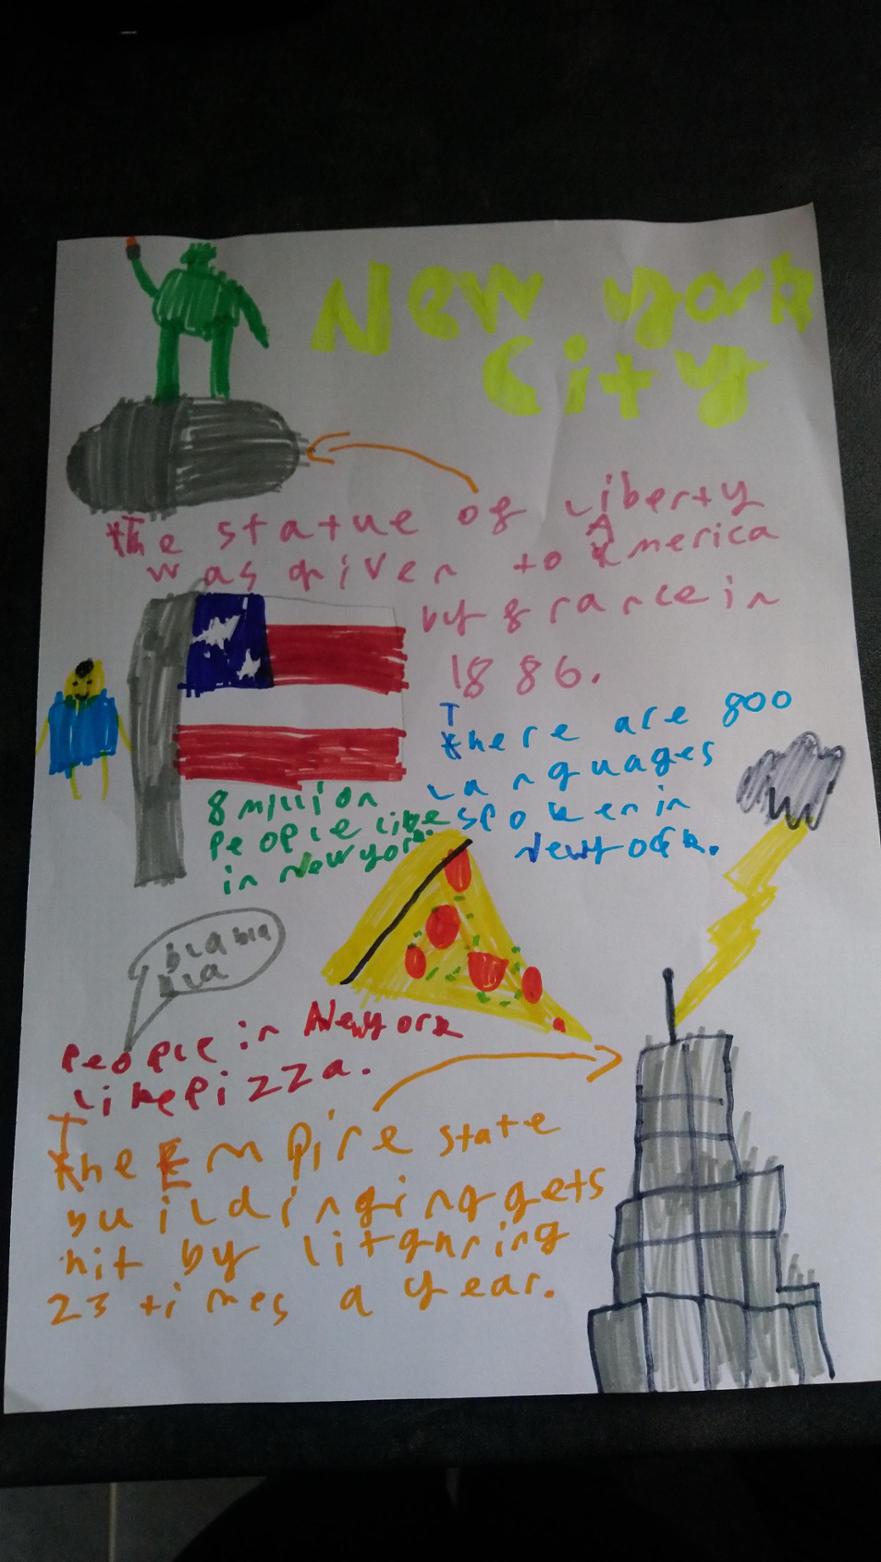 New york
City
The statue of Liberty
was given to America
by france in
1886.
There are 800
Languages
spoken in
Newyork.
8 million
people live
in Newyork.
bla bla
bla
people in Newyork
like pizza.
The Empire state
buildinginggets
hit by litghring
23 times a year.